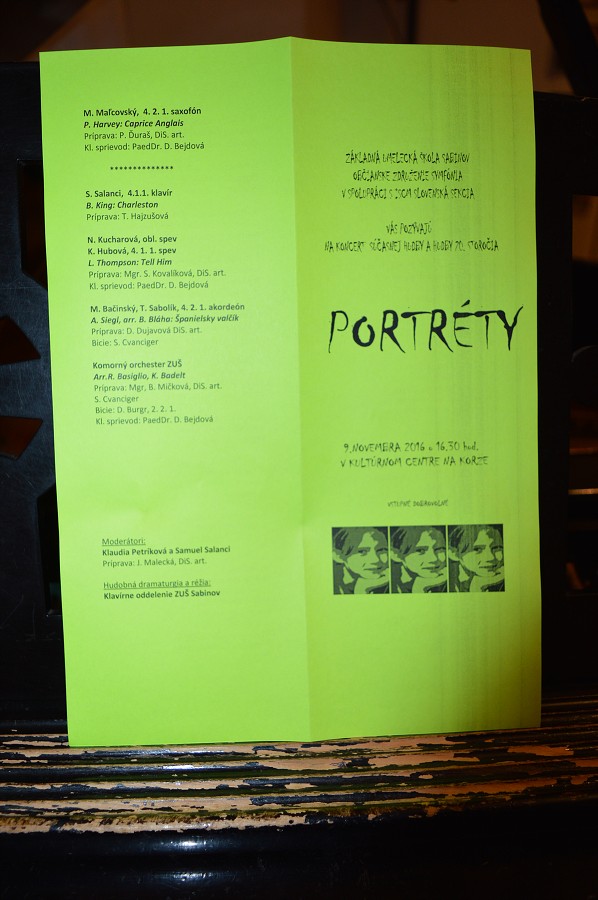 M. Maľcovský, 4. 2. 1. saxofón
P. Harvey: Caprice Anglais
Príprava: P. Ďuraš, DiS. art.
Kl. sprievod: PaedDr. D. Bejdová
**************
S. Salanci, 4.1.1. klavír
B. King: Charleston
Príprava: T. Hajzušová
N. Kucharová, obl. spev
K. Hubová, 4. 1. 1. spev
L. Thompson: Tell Him
Príprava: Mgr. S. Kovalíková, DiS. art.
Kl. sprievod: PaedDr. D. Bejdová
M. Bačinský, T. Sabolík, 4. 2. 1. akordeón
A. Siegl, arr. B. Bláha: Španielsky valčík
Príprava: D. Dujavová DiS. art.
Bicie: S. Cvanciger
Komorný orchester ZUŠ
Arr.R. Basiglio, K. Badelt
Príprava: Mgr, B. Mičková, DiS. art.
S. Cvanciger
Bicie: D. Burgr, 2. 2. 1.
Kl. sprievod: PaedDr. D. Bejdová
Moderátori:
Klaudia Petríková a Samuel Salanci
Príprava: J. Malecká, DiS. art.
Hudobná dramaturgia a réžia:
Klavírne oddelenie ZUŠ Sabinov
ZÁKLADNÁ UMELECKÁ ŠKOLA SABINOV
OBČIANSKE ZDRUŽENIE SYMFÓNIA
V SPOLUPRÁCI S ISCM SLOVENSKÁ SEKCIA
VÁS POZÝVAJÚ
NA KONCERT SÚČASNEJ HUDBY A HUDBY 20. STOROČIA
PORTRÉTY
9.NOVEMBRA 2016 o 16.30 hod.
V KULTÚRNOM CENTRE NA KORZE
VSTUPNÉ DOBROVOĽNÉ